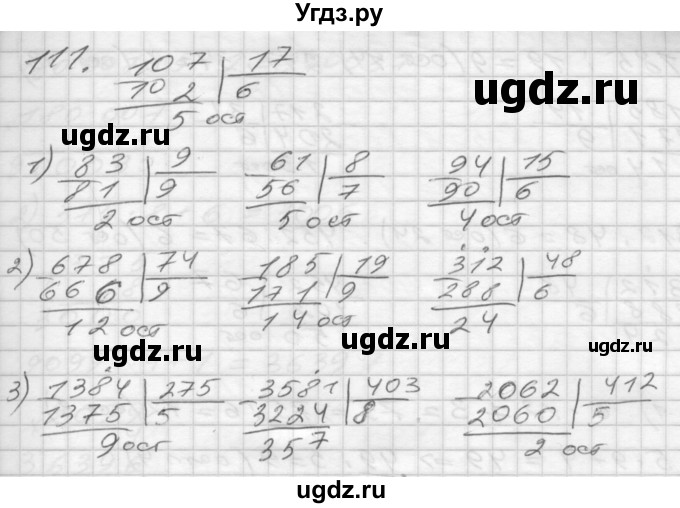 Угдз.ру
111. 107 | 17
102 | 6
5 ост
ugdz.ru
ugdz.ru
1) 83 | 9
81 | 9
2 ост
61 | 8
56 | 7
5 ост
94 | 15
90 | 6
4 ост
ugdz.ru
ugdz.ru
2) 678 | 74
666 | 9
12 ост
185 | 19
171 | 9
14 ост
312 | 48
288 | 6
24
ugdz.ru
ugdz.ru
3) 1384 | 275
1375 | 5
9 ост
3581 | 403
3224 | 8
357
2062 | 412
2060 | 5
2 ост
ugdz.ru
ugdz.ru